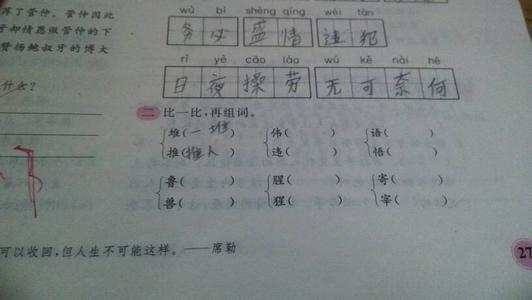 浑了管仲。管仲因此
才却情愿做管仲的下
赞扬鲍叔牙的博大
什么？
wù bì shèng qíng wéi fàn
务必 盛情 违犯
rì yè cāo láo wú kě nài hé
日夜操劳 无可奈何
二 比一比，再组词。
堆(一堆) 伟( ) 语( )
推(推人) 违( ) 悟( )
鲁( ) 腥( ) 寄( )
兽( ) 猩( ) 宰( )
可以收回，但人生不可能这样。——席勒
27